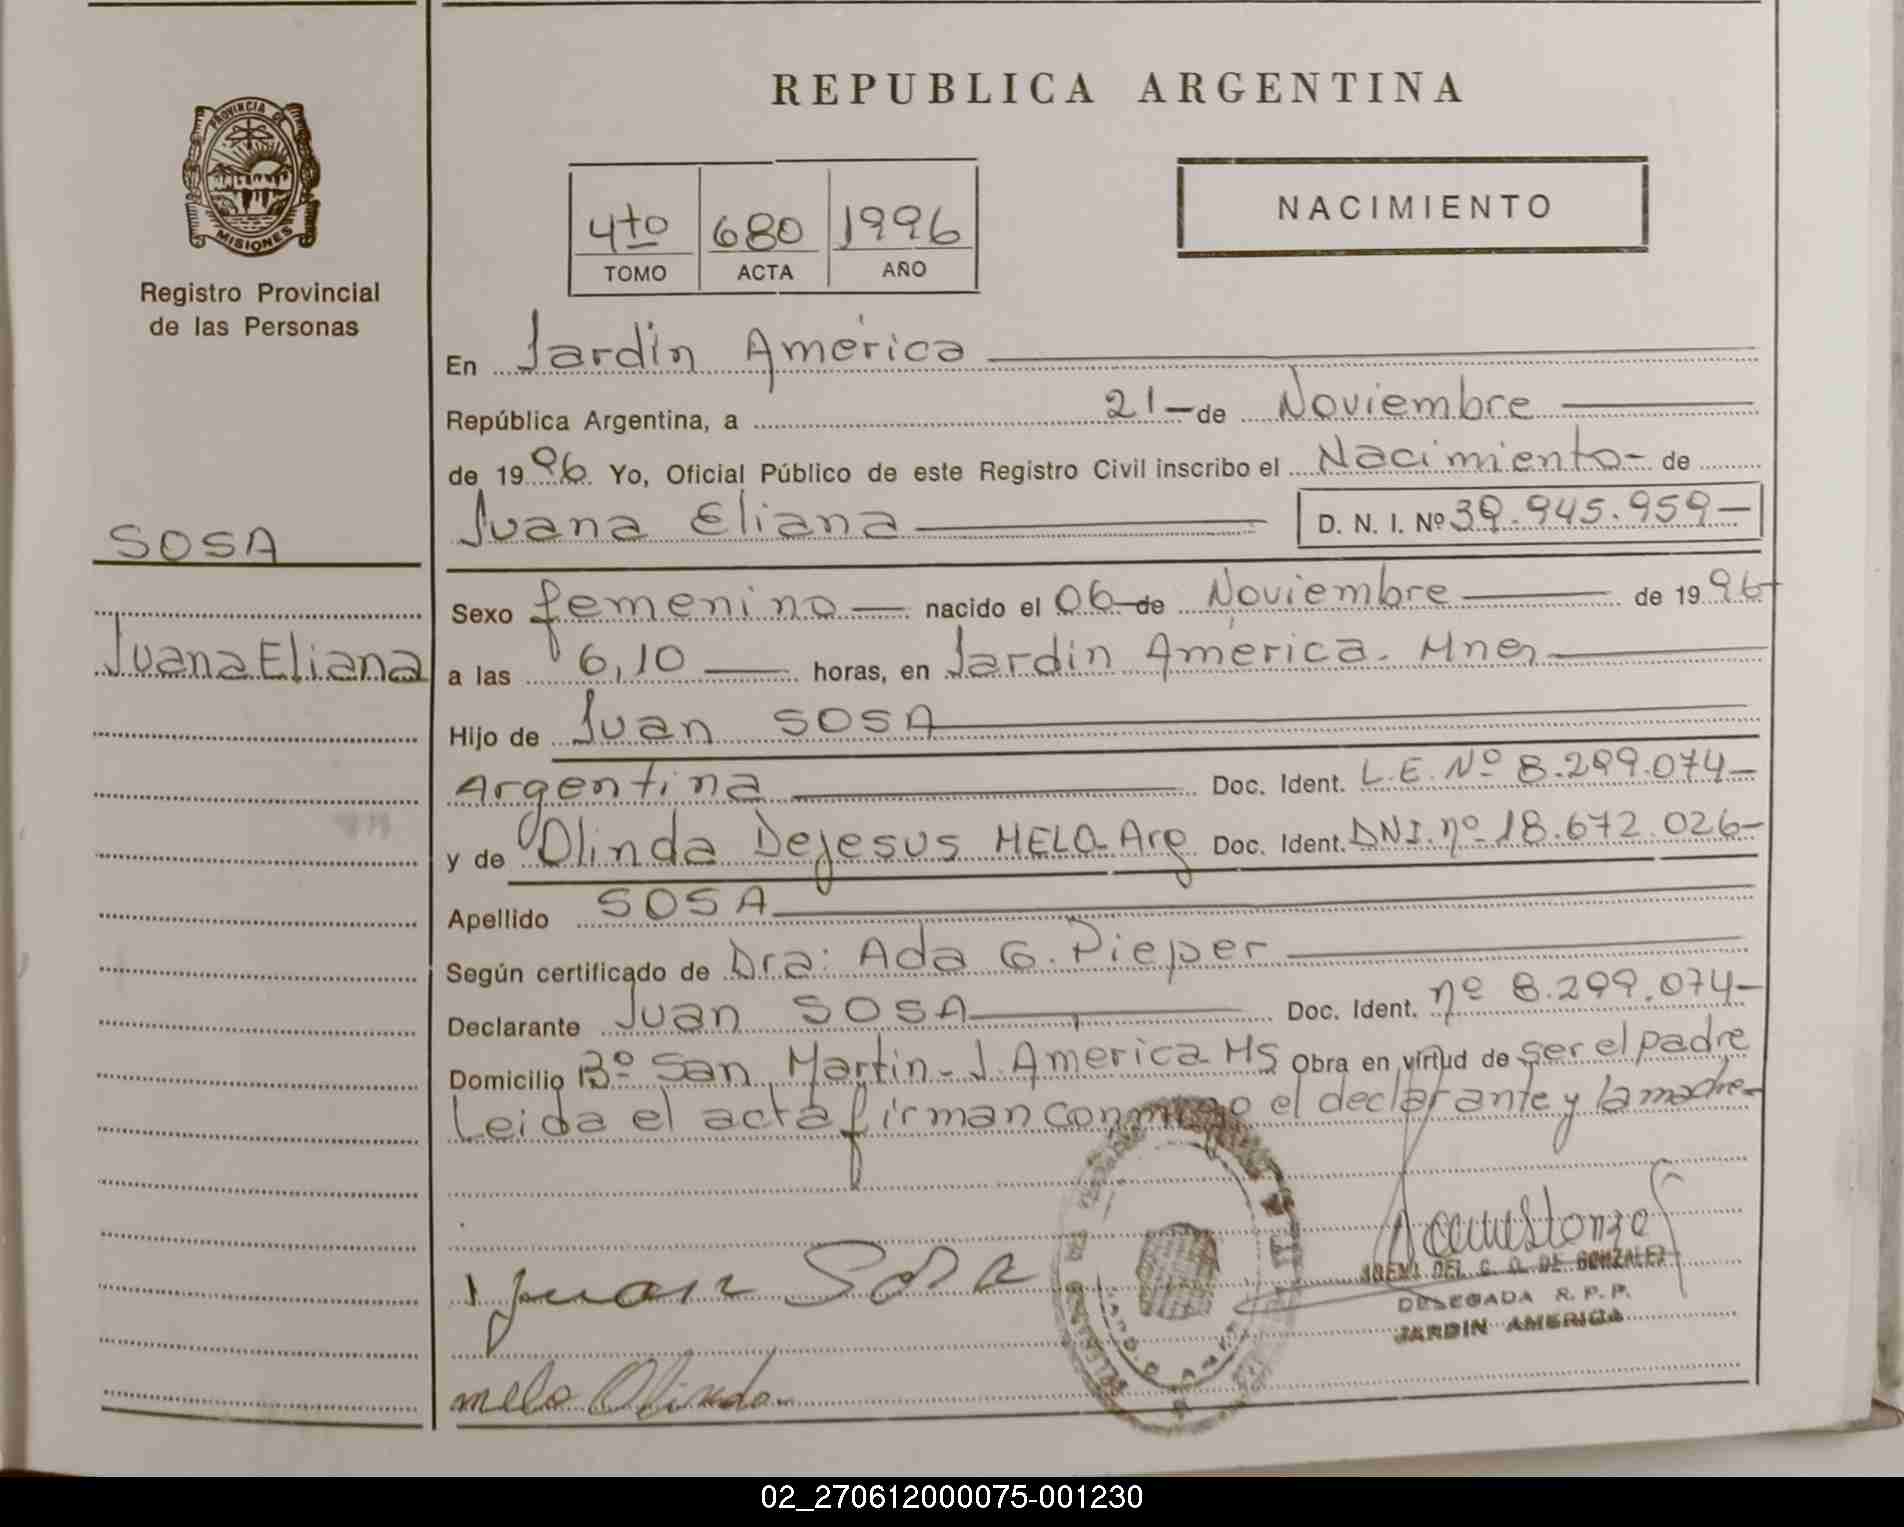 REPUBLICA ARGENTINA
PROVINCIA DE
MISIONES
Registro Provincial
de las Personas
4to 680 1996
TOMO ACTA AÑO
NACIMIENTO
SOSA
Juana Eliana
En Jardín América
República Argentina, a 21 de Noviembre
de 1996. Yo, Oficial Público de este Registro Civil inscribo el Nacimiento- de
Juana Eliana D. N. I. Nº 39.945.959-
Sexo femenino nacido el 06 de Noviembre de 1996
a las 6,10 horas, en Jardín América. Mnes
Hijo de Juan SOSA
Argentina Doc. Ident. L.E. Nº 8.299.074-
y de Olinda Dejesus MELO Arg Doc. Ident. DNI. nº 18.672.026-
Apellido SOSA
Según certificado de Dra: Ada G. Pieper
Declarante Juan SOSA Doc. Ident. nº 8.299.074-
Domicilio Bº San Martin - J. America Ms Obra en virtud de ser el padre
Leida el acta firman conmigo el declarante y la madre-
Juan Sosa
DE GONZALEZ
DELEGADA R. P. P.
JARDIN AMERICA
melo Olinda
02_270612000075-001230